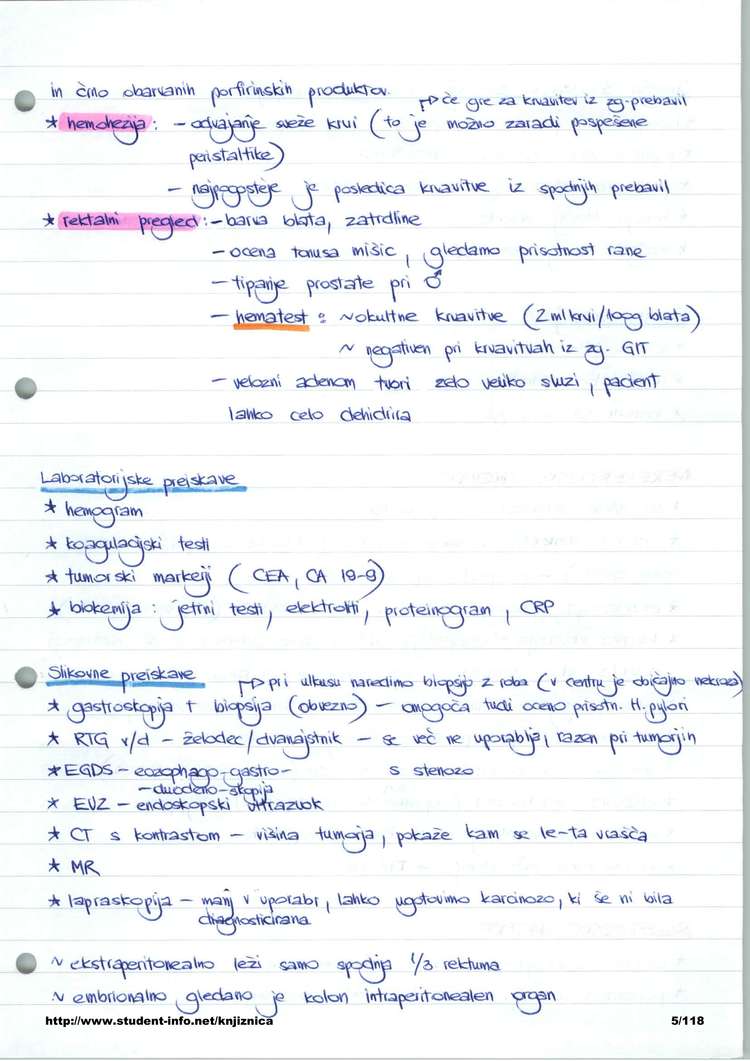 in črno obarvanih porfirinskih produktov.
↱ če gre za krvavitev iz zg. prebavil
* hemohezija: - odvajanje sveže krvi (to je možno zaradi pospešene
peristaltike)
- najpogosteje je posledica krvavitve iz spodnjih prebavil
* rektalni pregled: - barva blata, zatrdline
- ocena tonusa mišic, gledamo prisotnost rane
- tipanje prostate pri ♂
- hematest: ~ okultne krvavitve (2ml krvi/100g blata)
~ negativen pri krvavitvah iz zg. GIT
- velozni adenom tvori zelo veliko sluzi, pacient
lahko celo dehidrira
Laboratorijske preiskave
* hemogram
* koagulacijski testi
* tumorski markerji (CEA, CA 19-9)
* biokemija: jetrni testi, elektroliti, proteinogram, CRP
Slikovne preiskave
↱ pri ulkusu naredimo biopsijo z roba (v centru je običajno nekroza)
* gastroskopija + biopsija (obvezno) - omogoča tudi oceno prisotn. H. pylori
* RTG ž/d - želodec/dvanajstnik - se več ne uporablja, razen pri tumorjih
s stenozo
* EGDS - eozophago-gastro-
-duodeno-skopija
* EUZ - endoskopski ultrazvok
* CT s kontrastom - višina tumorja, pokaže kam se le-ta vrašča
* MR
* lapraskopija - manj v uporabi, lahko ugotovimo karcinozo, ki še ni bila
diagnosticirana
~ ekstraperitonealno leži samo spodnja 1/3 rektuma
~ embrionalno gledano je kolon intraperitonealen organ
http://www.student-info.net/knjiznica 5/118